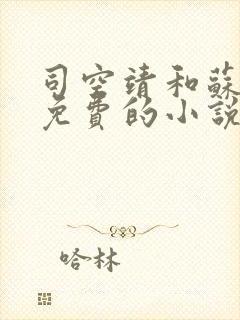 司空靖和蘇
免費的小說
哈林